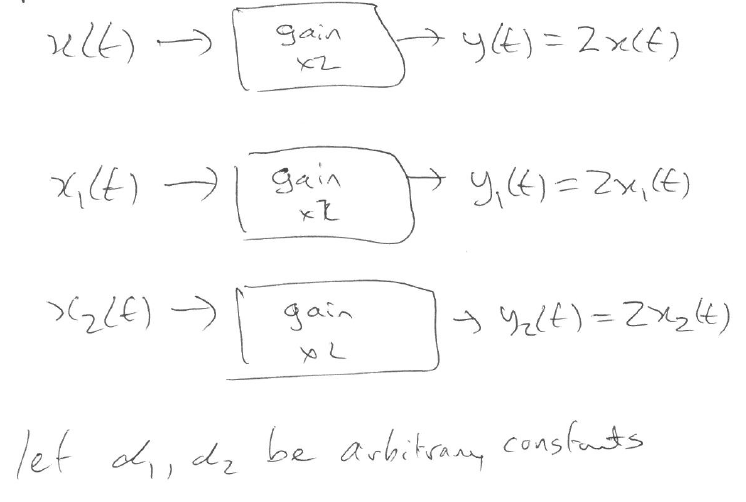 x(t) → gain x2 → y(t) = 2x(t)
x₁(t) → gain x2 → y₁(t) = 2x₁(t)
x₂(t) → gain x2 → y₂(t) = 2x₂(t)
let α₁, α₂ be arbitrary constants